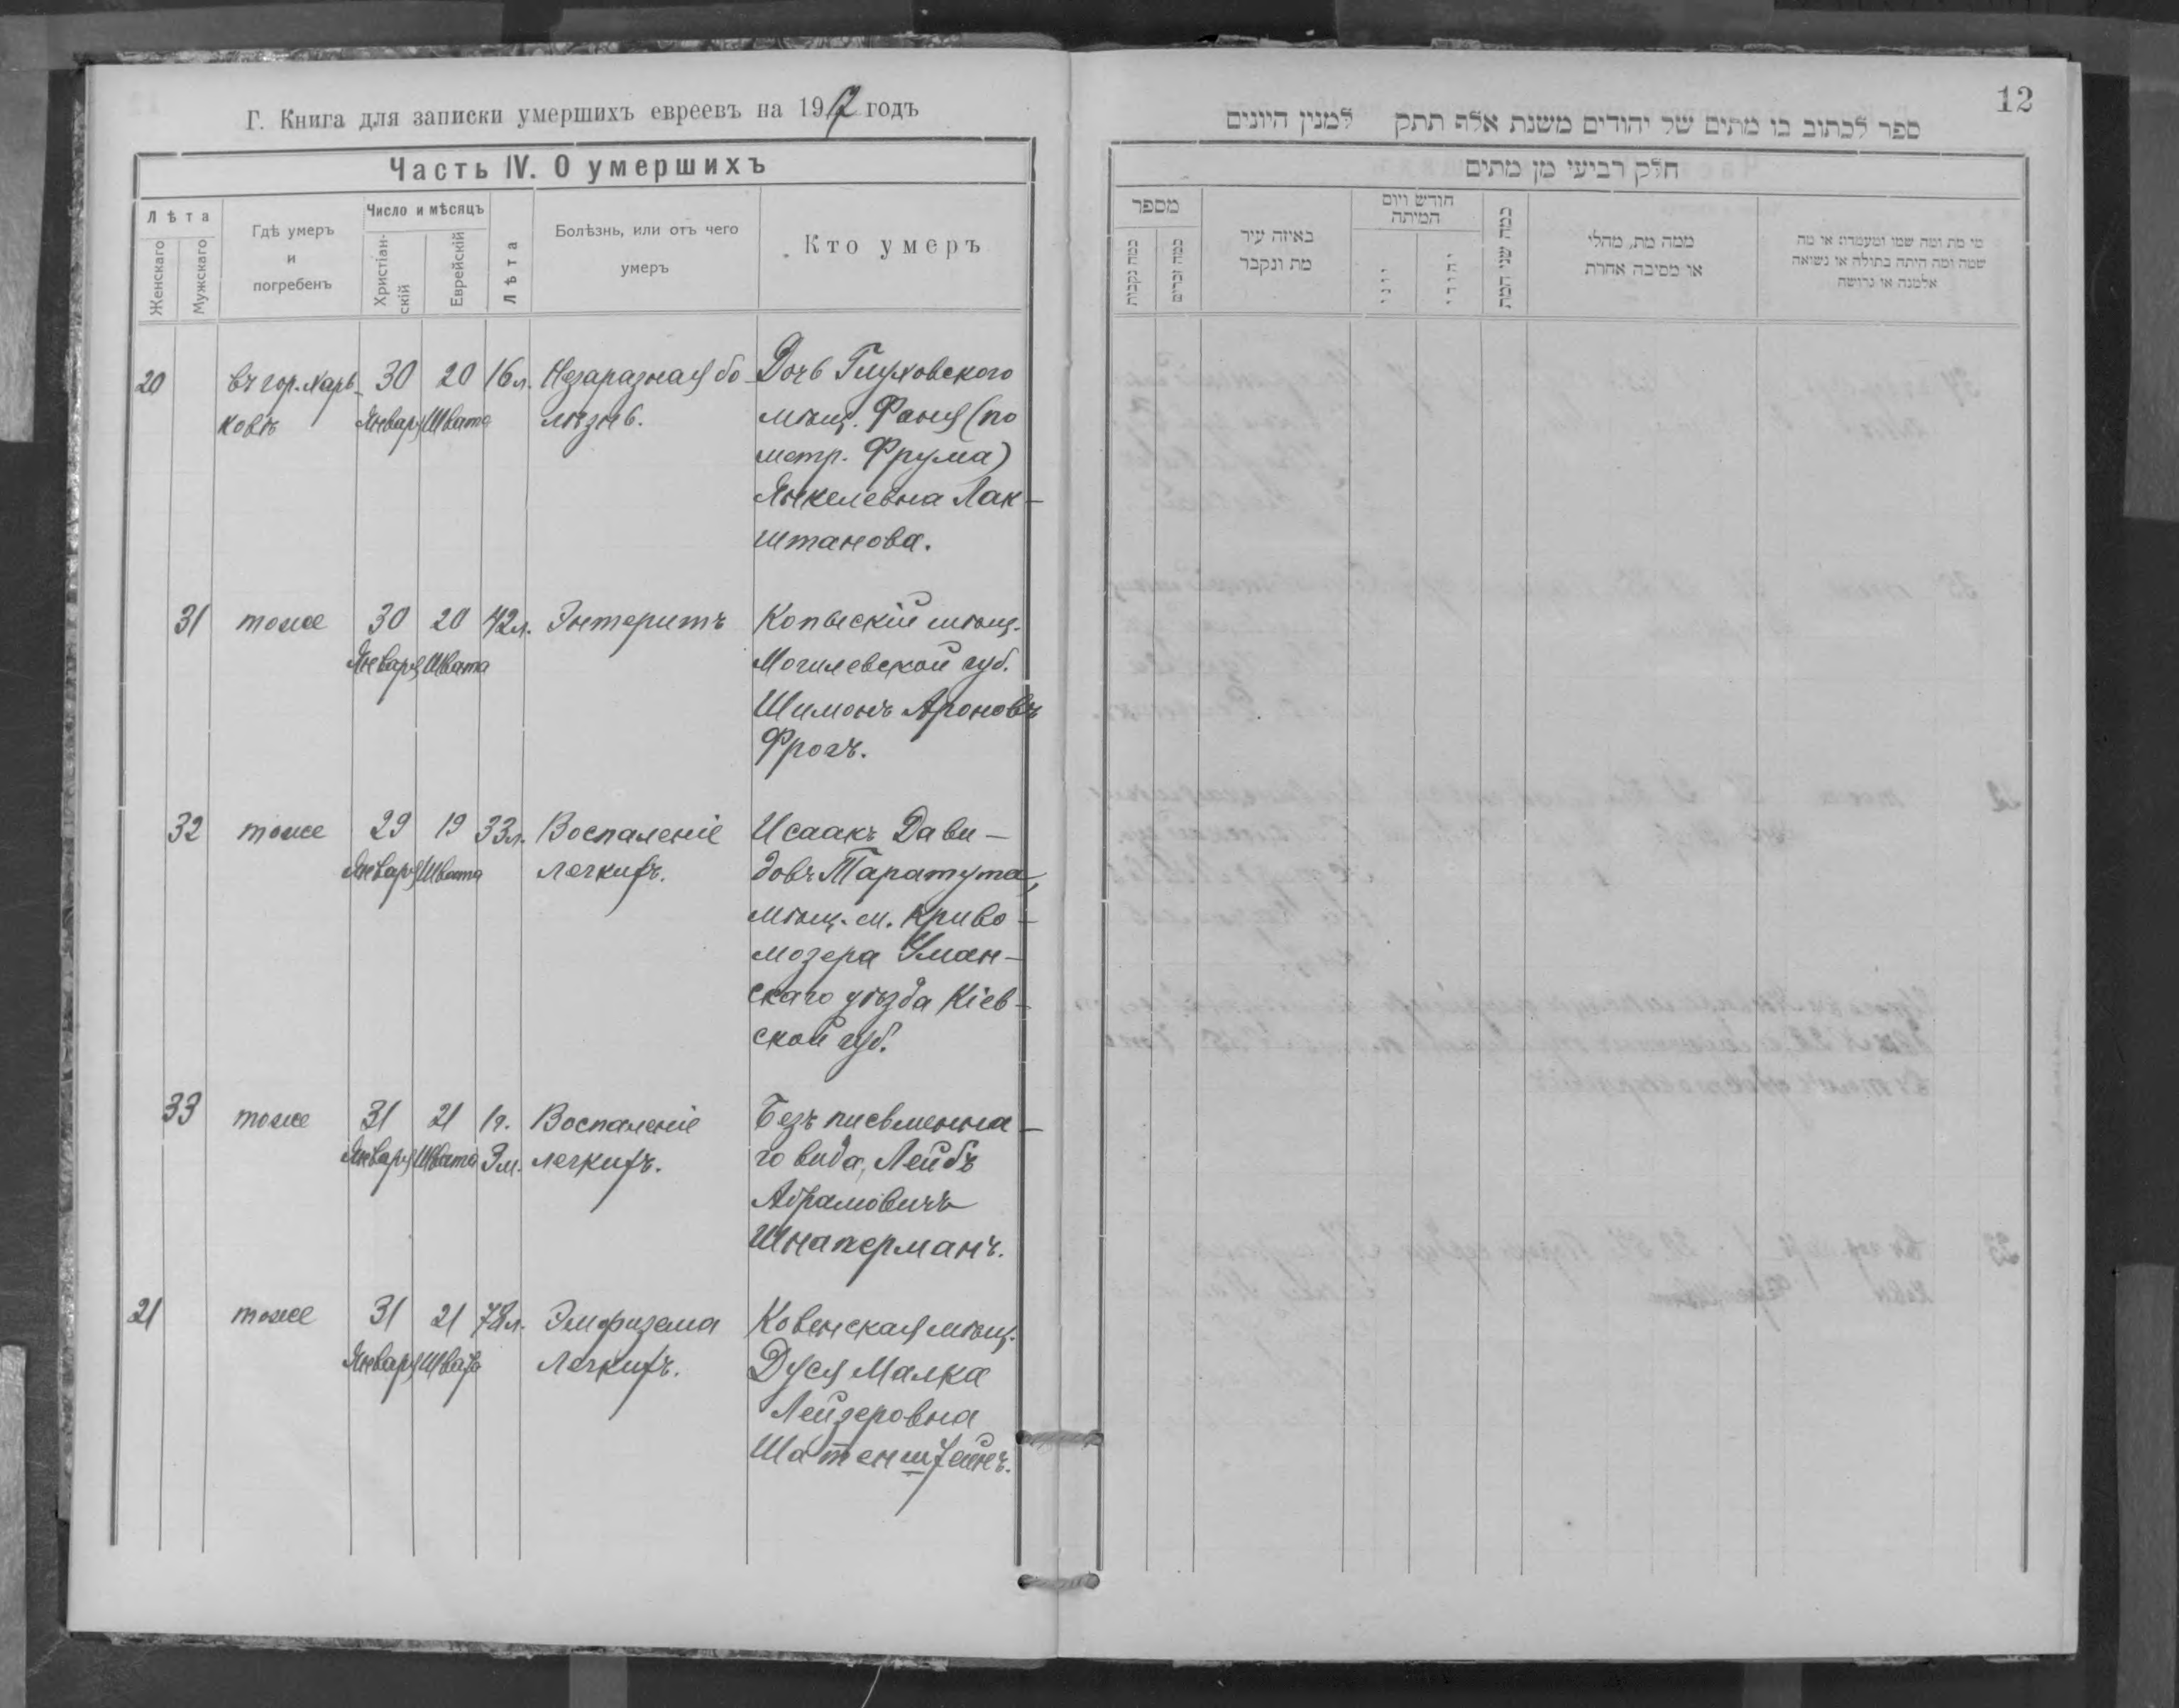 Г. Книга для записки умершихъ евреевъ на 1917 годъ
Часть IV. О умершихъ
Лѣта
Женскаго
Мужскаго
Гдѣ умеръ
и
погребенъ
Число и мѣсяцъ
Христіан-
скій
Еврейскій
Лѣта
Болѣзнь, или отъ чего
умеръ
Кто умеръ
20 въ гор. Харь- 30 20 16 л. Незаразная бо- Дочь Глуховского
ковѣ Января Швата лѣзнь. мѣщ. Фаня (по
метр. Фрума)
Янкелевна Лак-
штанова.
31 тоже 30 20 42 л. Энтеритъ Копыскій мѣщ.
Января Швата Могилевской губ.
Шимонъ Ароновъ
Фрогъ.
32 тоже 29 19 33 л. Воспаленіе Исаакъ Дави-
Января Швата легкихъ. довъ Таратута,
мѣщ. м. Криво-
мозера Уман-
скаго уѣзда Кіев-
ской губ.
33 тоже 31 21 1 г. Воспаленіе Безъ письменна-
Января Швата 3 м. легкихъ. го вида, Лейбъ
Абрамовичъ
Шнаперманъ.
21 тоже 31 21 78 л. Эмфизема Ковенская мѣщ.
Января Швата Легкихъ. Дуся Малка
Лейзеровна
Шатенштейнъ.
12
ספר לכתוב בו מתים של יהודים משנת אלף תתק למנין היונים
חלק רביעי מן מתים
מספר
כמה נקבות
כמה זכרים
באיזה עיר
מת ונקבר
חודש ויום
המיתה
יוני
יהודי
כמה שני המת
ממה מת, מחלי
או מסיבה אחרת
מי מת ומה שמו ומעמדו או מה
שמה ומה היתה בתולה או נשואה
אלמנה או גרושה